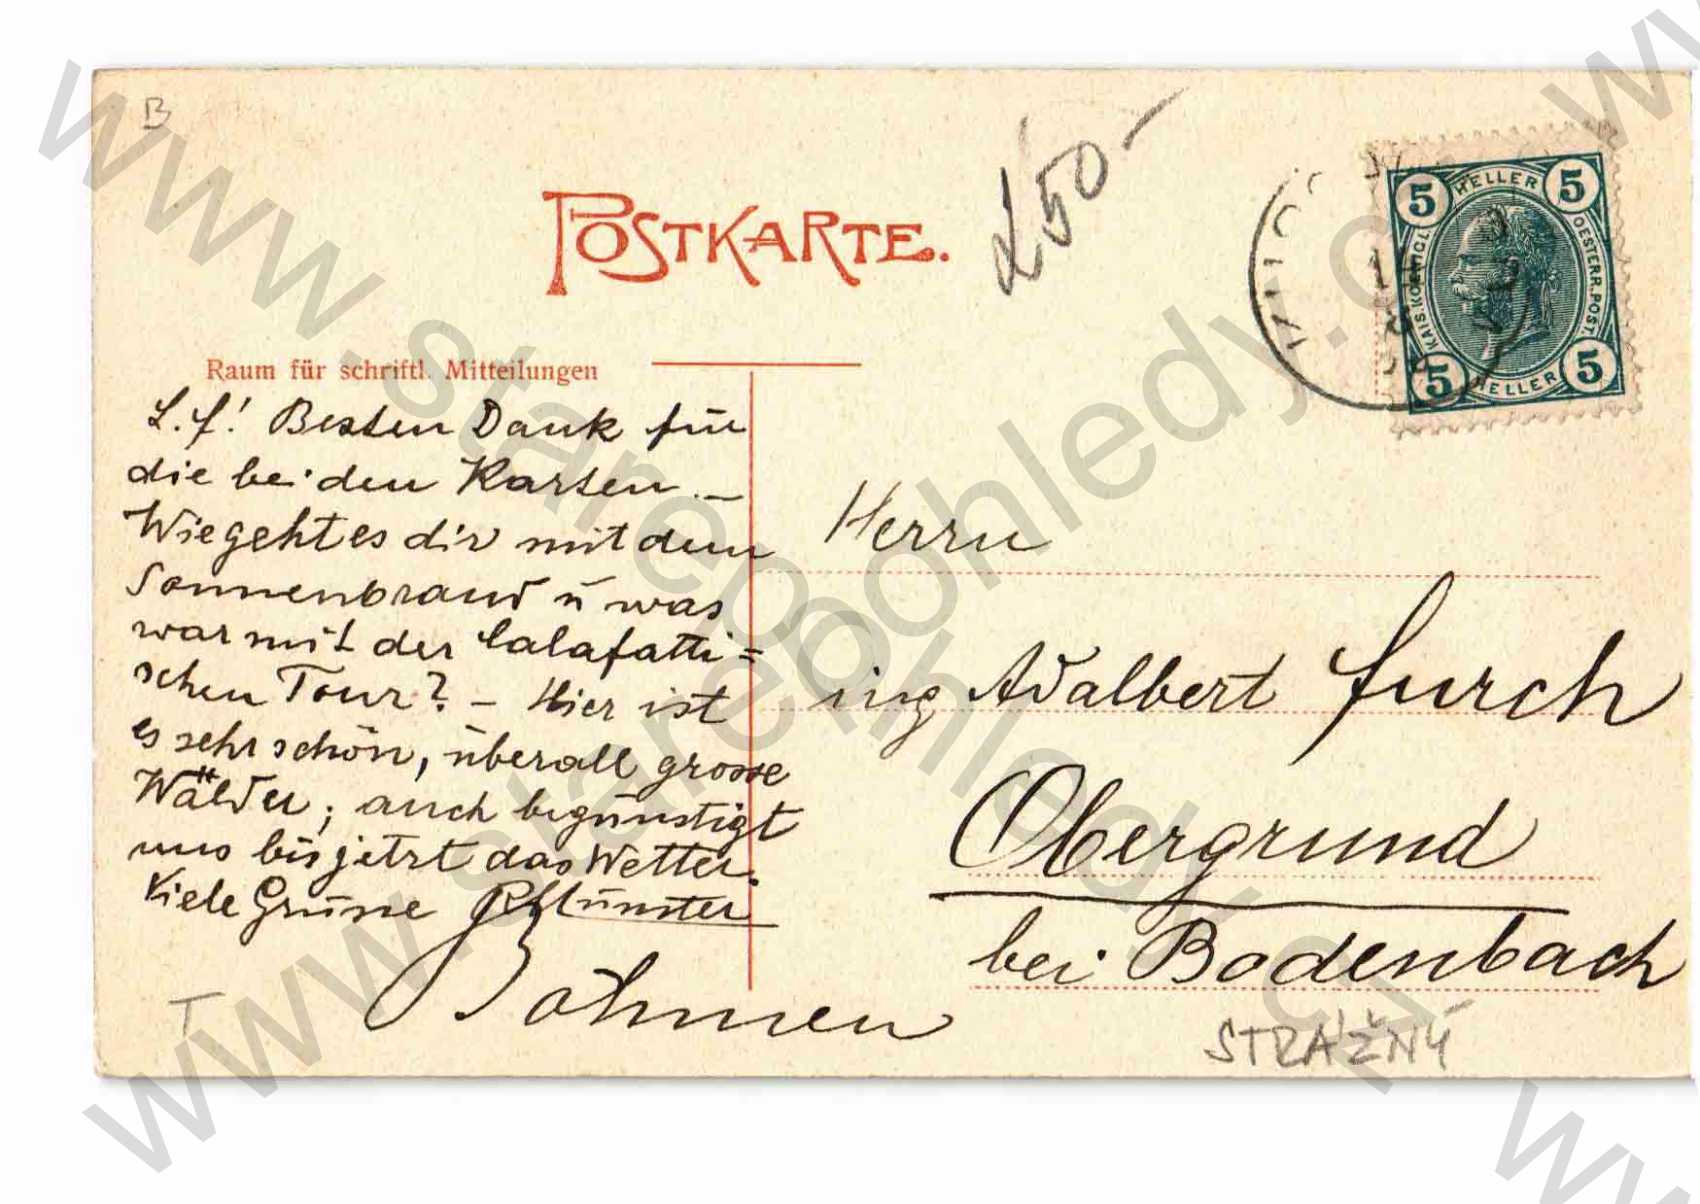 B
POSTKARTE.
250-
5 HELLER 5
KAIS. KÖNIGL. OESTERR. POST.
5 HELLER 5
Raum für schriftl. Mitteilungen
L. f! Besten Dank für
die beiden Karten. -
Wie geht es dir mit dem
Sonnenbrand u was
war mit der Calafatti=
schen Tour? - Hier ist
es sehr schön, überall grosse
Wälder; auch begünstigt
uns bis jetzt das Wetter.
Viele Grüsse
Böhmen
Herrn
ing Adalbert Furch
Obergrund
bei Bodenbach
T
STRÁŽNÝ
www.starepohledy.cz
www.starepohledy.cz